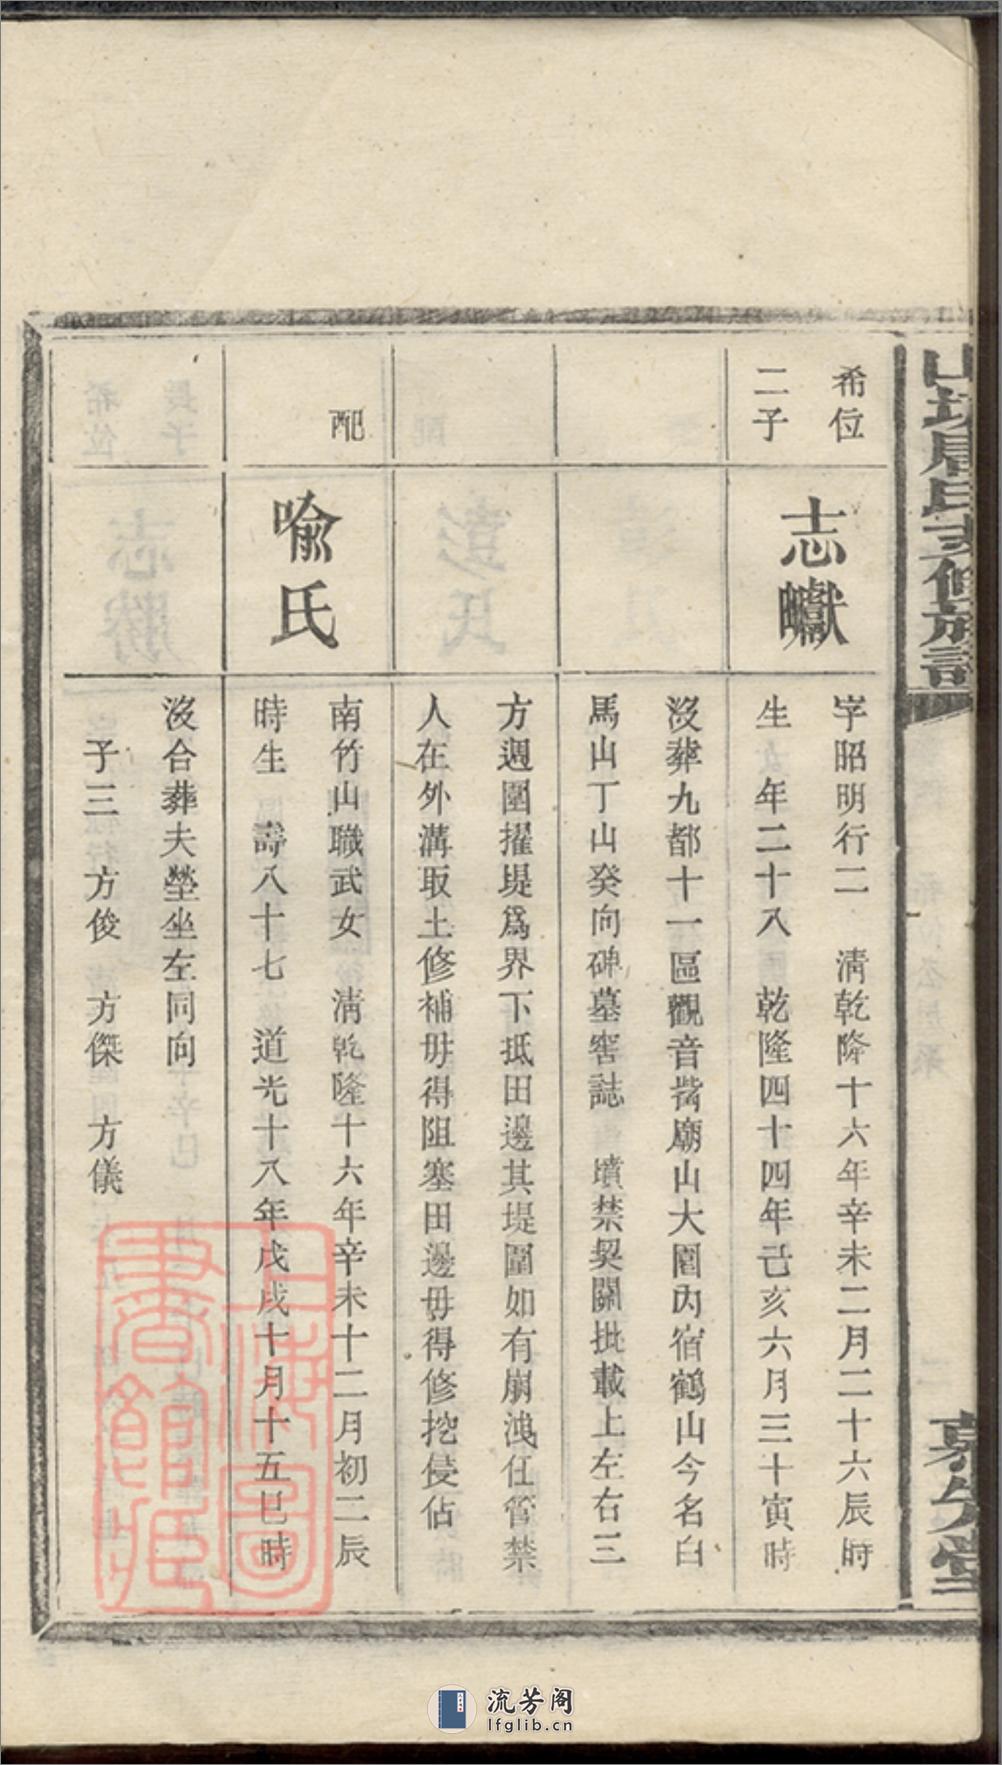 希位
二子
志巘
字昭明行二 清乾隆十六年辛未二月二十六辰時
生 年二十八 乾隆四十四年己亥六月三十寅時
沒葬九都十一區觀音嘴廟山大圍內宿鶴山今名白
馬山丁山癸向碑墓窖誌 墳禁契關批載上左右三
方週圍擢堤爲界下抵田邊其堤圍如有崩洩任管禁
人在外溝取土修補毋得阻塞田邊毋得修挖侵佔
配
喻氏
南竹山職武女 清乾隆十六年辛未十二月初二辰
時生 壽八十七 道光十八年戊戌十月十五巳時
沒合葬夫塋坐左同向
子三 方俊 方傑 方儀
上海圖
書館藏
流芳阁
lfglib.cn